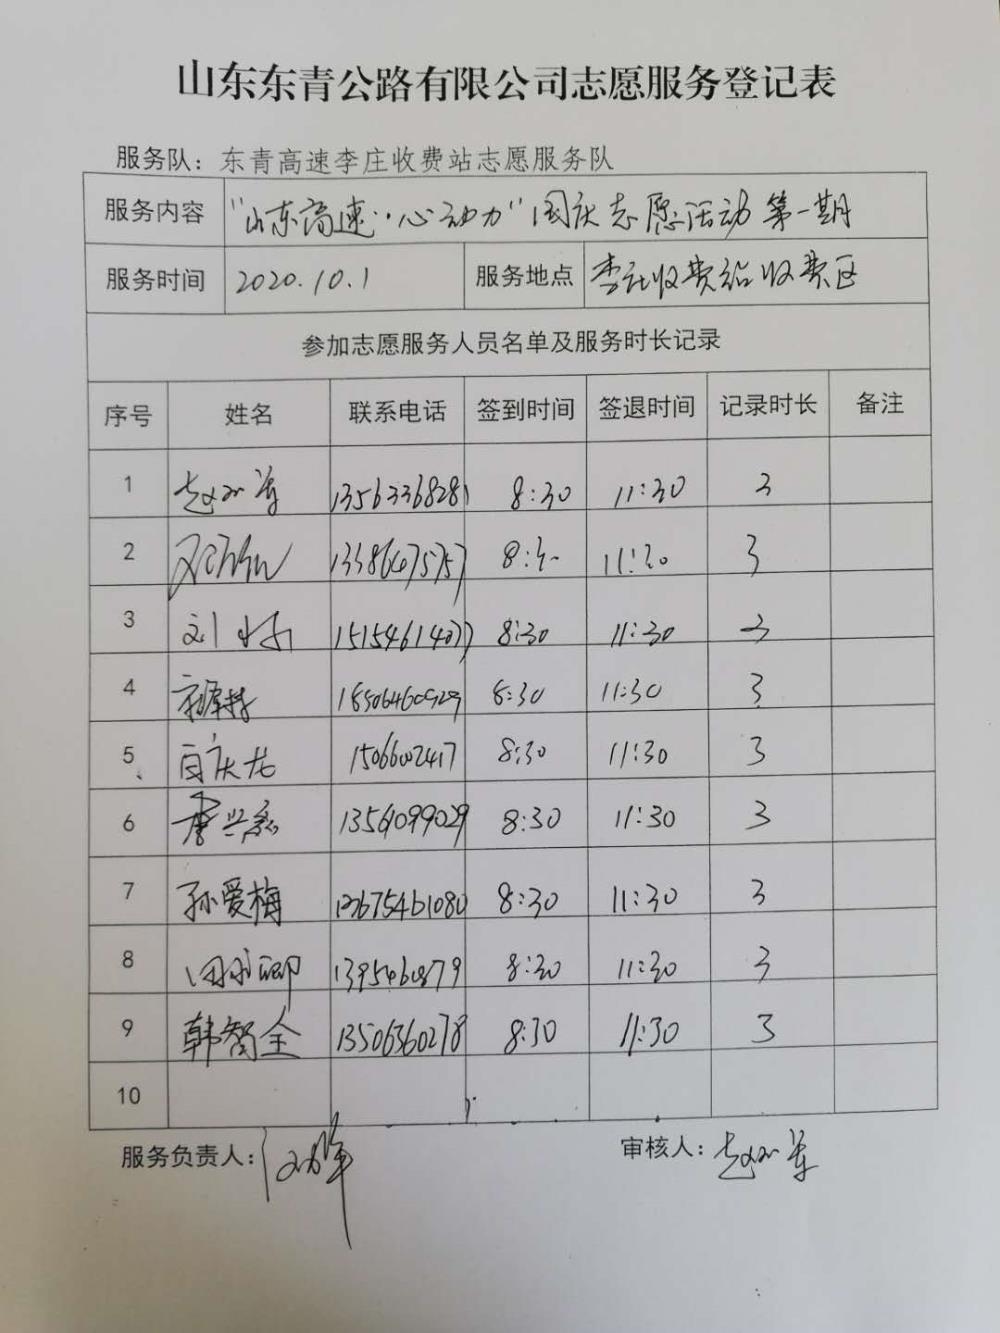 山东东青公路有限公司志愿服务登记表
服务队：东青高速李庄收费站志愿服务队
服务内容 "山东高速··心动力"国庆志愿活动第一期
服务时间 2020.10.1 服务地点 李庄收费站收费区
参加志愿服务人员名单及服务时长记录
序号 姓名 联系电话 签到时间 签退时间 记录时长 备注
1 13563368281 8:30 11:30 3
2 13386475757 8:30 11:30 3
3 刘 15154614077 8:30 11:30 3
4 8:30 11:30 3
5 百庆龙 15066002417 8:30 11:30 3
6 唐兴 13561099029 8:30 11:30 3
7 孙爱梅 13675461080 8:30 11:30 3
8 8:30 11:30 3
9 韩智全 13506360278 8:30 11:30 3
10
服务负责人： 审核人：